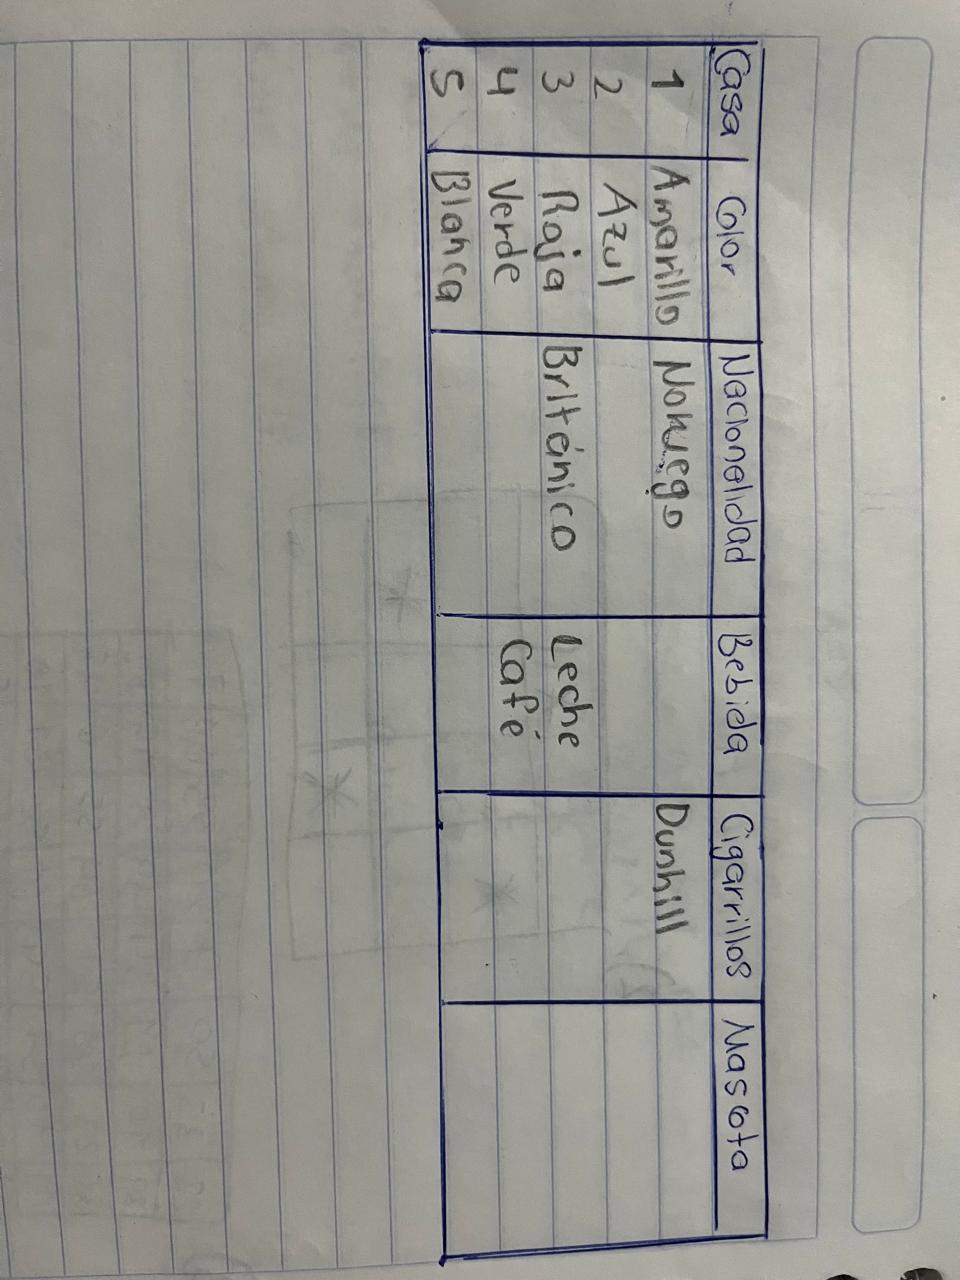 Casa Color Nacionalidad Bebida Cigarrillos Mascota
1 Amarillo Noruego Dunhill
2 Azul
3 Roja Británico Leche
4 Verde Café
5 Blanca